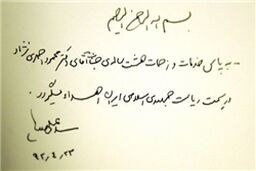 بسم الله الرحمن الرحیم
- به پاس خدمات و زحمات هشت ساله‌ی جناب آقای دکتر محمود احمدی نژاد
در سمت ریاست جمهوری اسلامی ایران اهداء میگردد.
۹۲,۴,۲۳